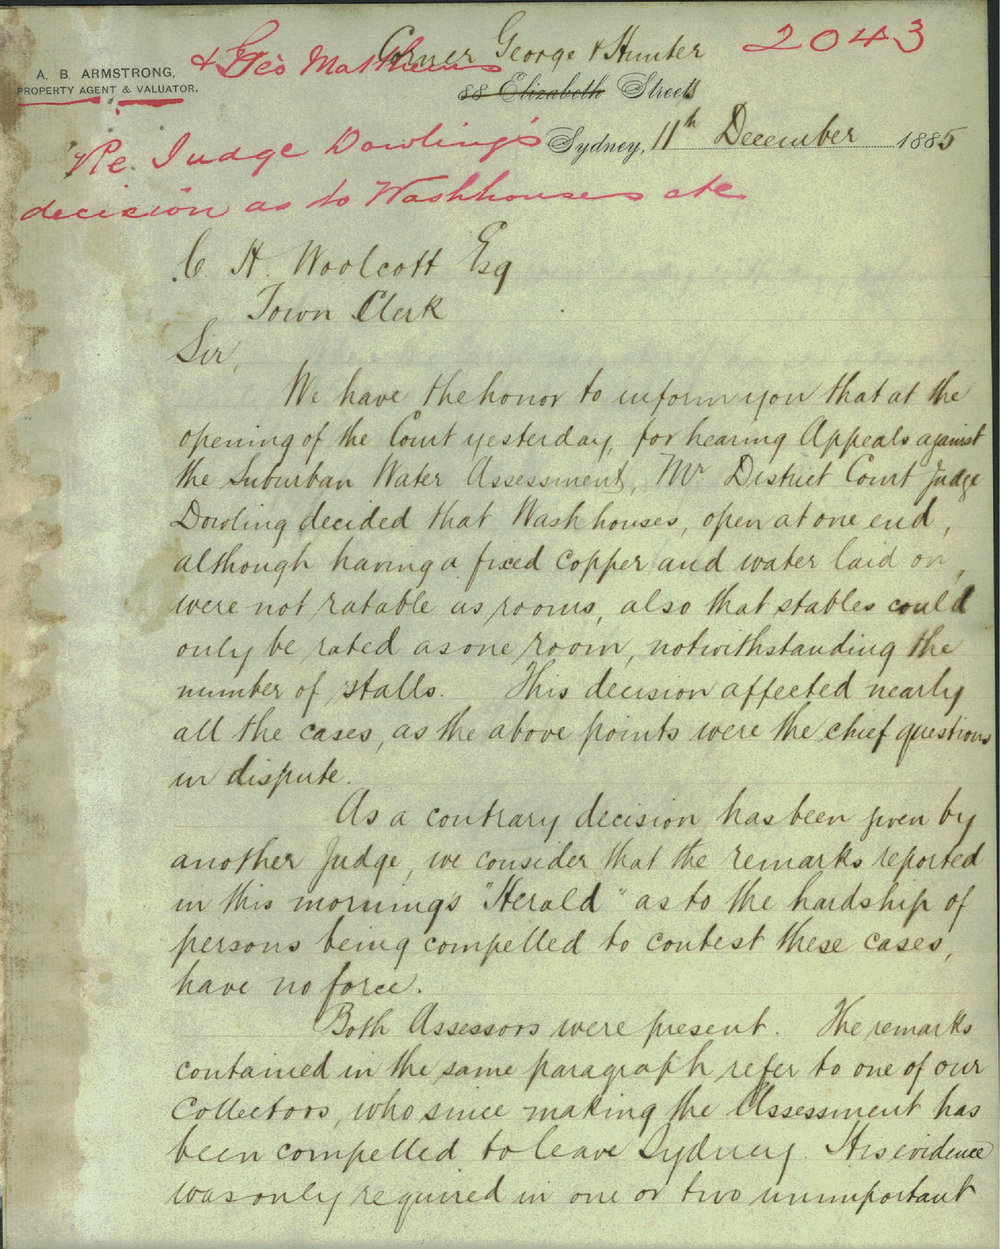 2043
& Geo Matthews
Corner George & Hunter
A. B. ARMSTRONG,
PROPERTY AGENT & VALUATOR.
88 Elizabeth Streets
Sydney, 11th December 1885
Re Judge Dowling's
decision as to Washhouses etc
C. H. Woolcott Esq
Town Clerk
Sir,
We have the honor to inform you that at the
opening of the Court yesterday, for hearing Appeals against
the Suburban Water Assessment, Mr District Court Judge
Dowling decided that Wash houses, open at one end,
although having a fixed copper and water laid on,
were not ratable as rooms, also that stables could
only be rated as one room, notwithstanding the
number of stalls. This decision affected nearly
all the cases, as the above points were the chief questions
in dispute.
As a contrary decision has been given by
another Judge, we consider that the remarks reported
in this mornings "Herald" as to the hardship of
persons being compelled to contest these cases,
have no force.
Both Assessors were present. The remarks
contained in the same paragraph refer to one of our
Collectors, who since making the Assessment has
been compelled to leave Sydney. His evidence
was only required in one or two unimportant